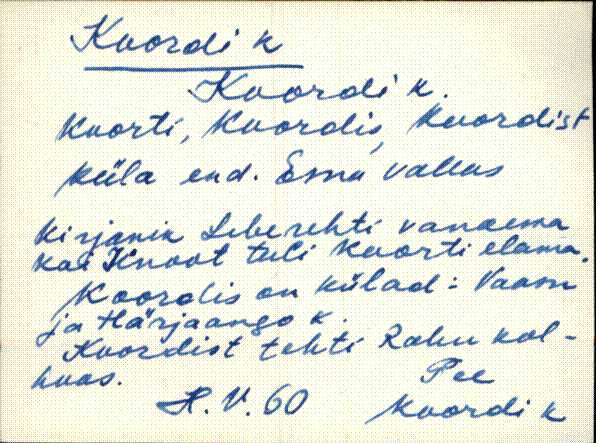 Koordi k
Koordi k.
Koorti, Koordis, Koordist
küla end. Esna vallas
Kirjanik Leberehti vanaema
Kai Knoot tuli Koorti elama.
Koordis on külad: Vaasu
ja Härjaango k.
Koordist tehti Rahu kol-
hoos.
Pee
H. V. 60
Koordi k